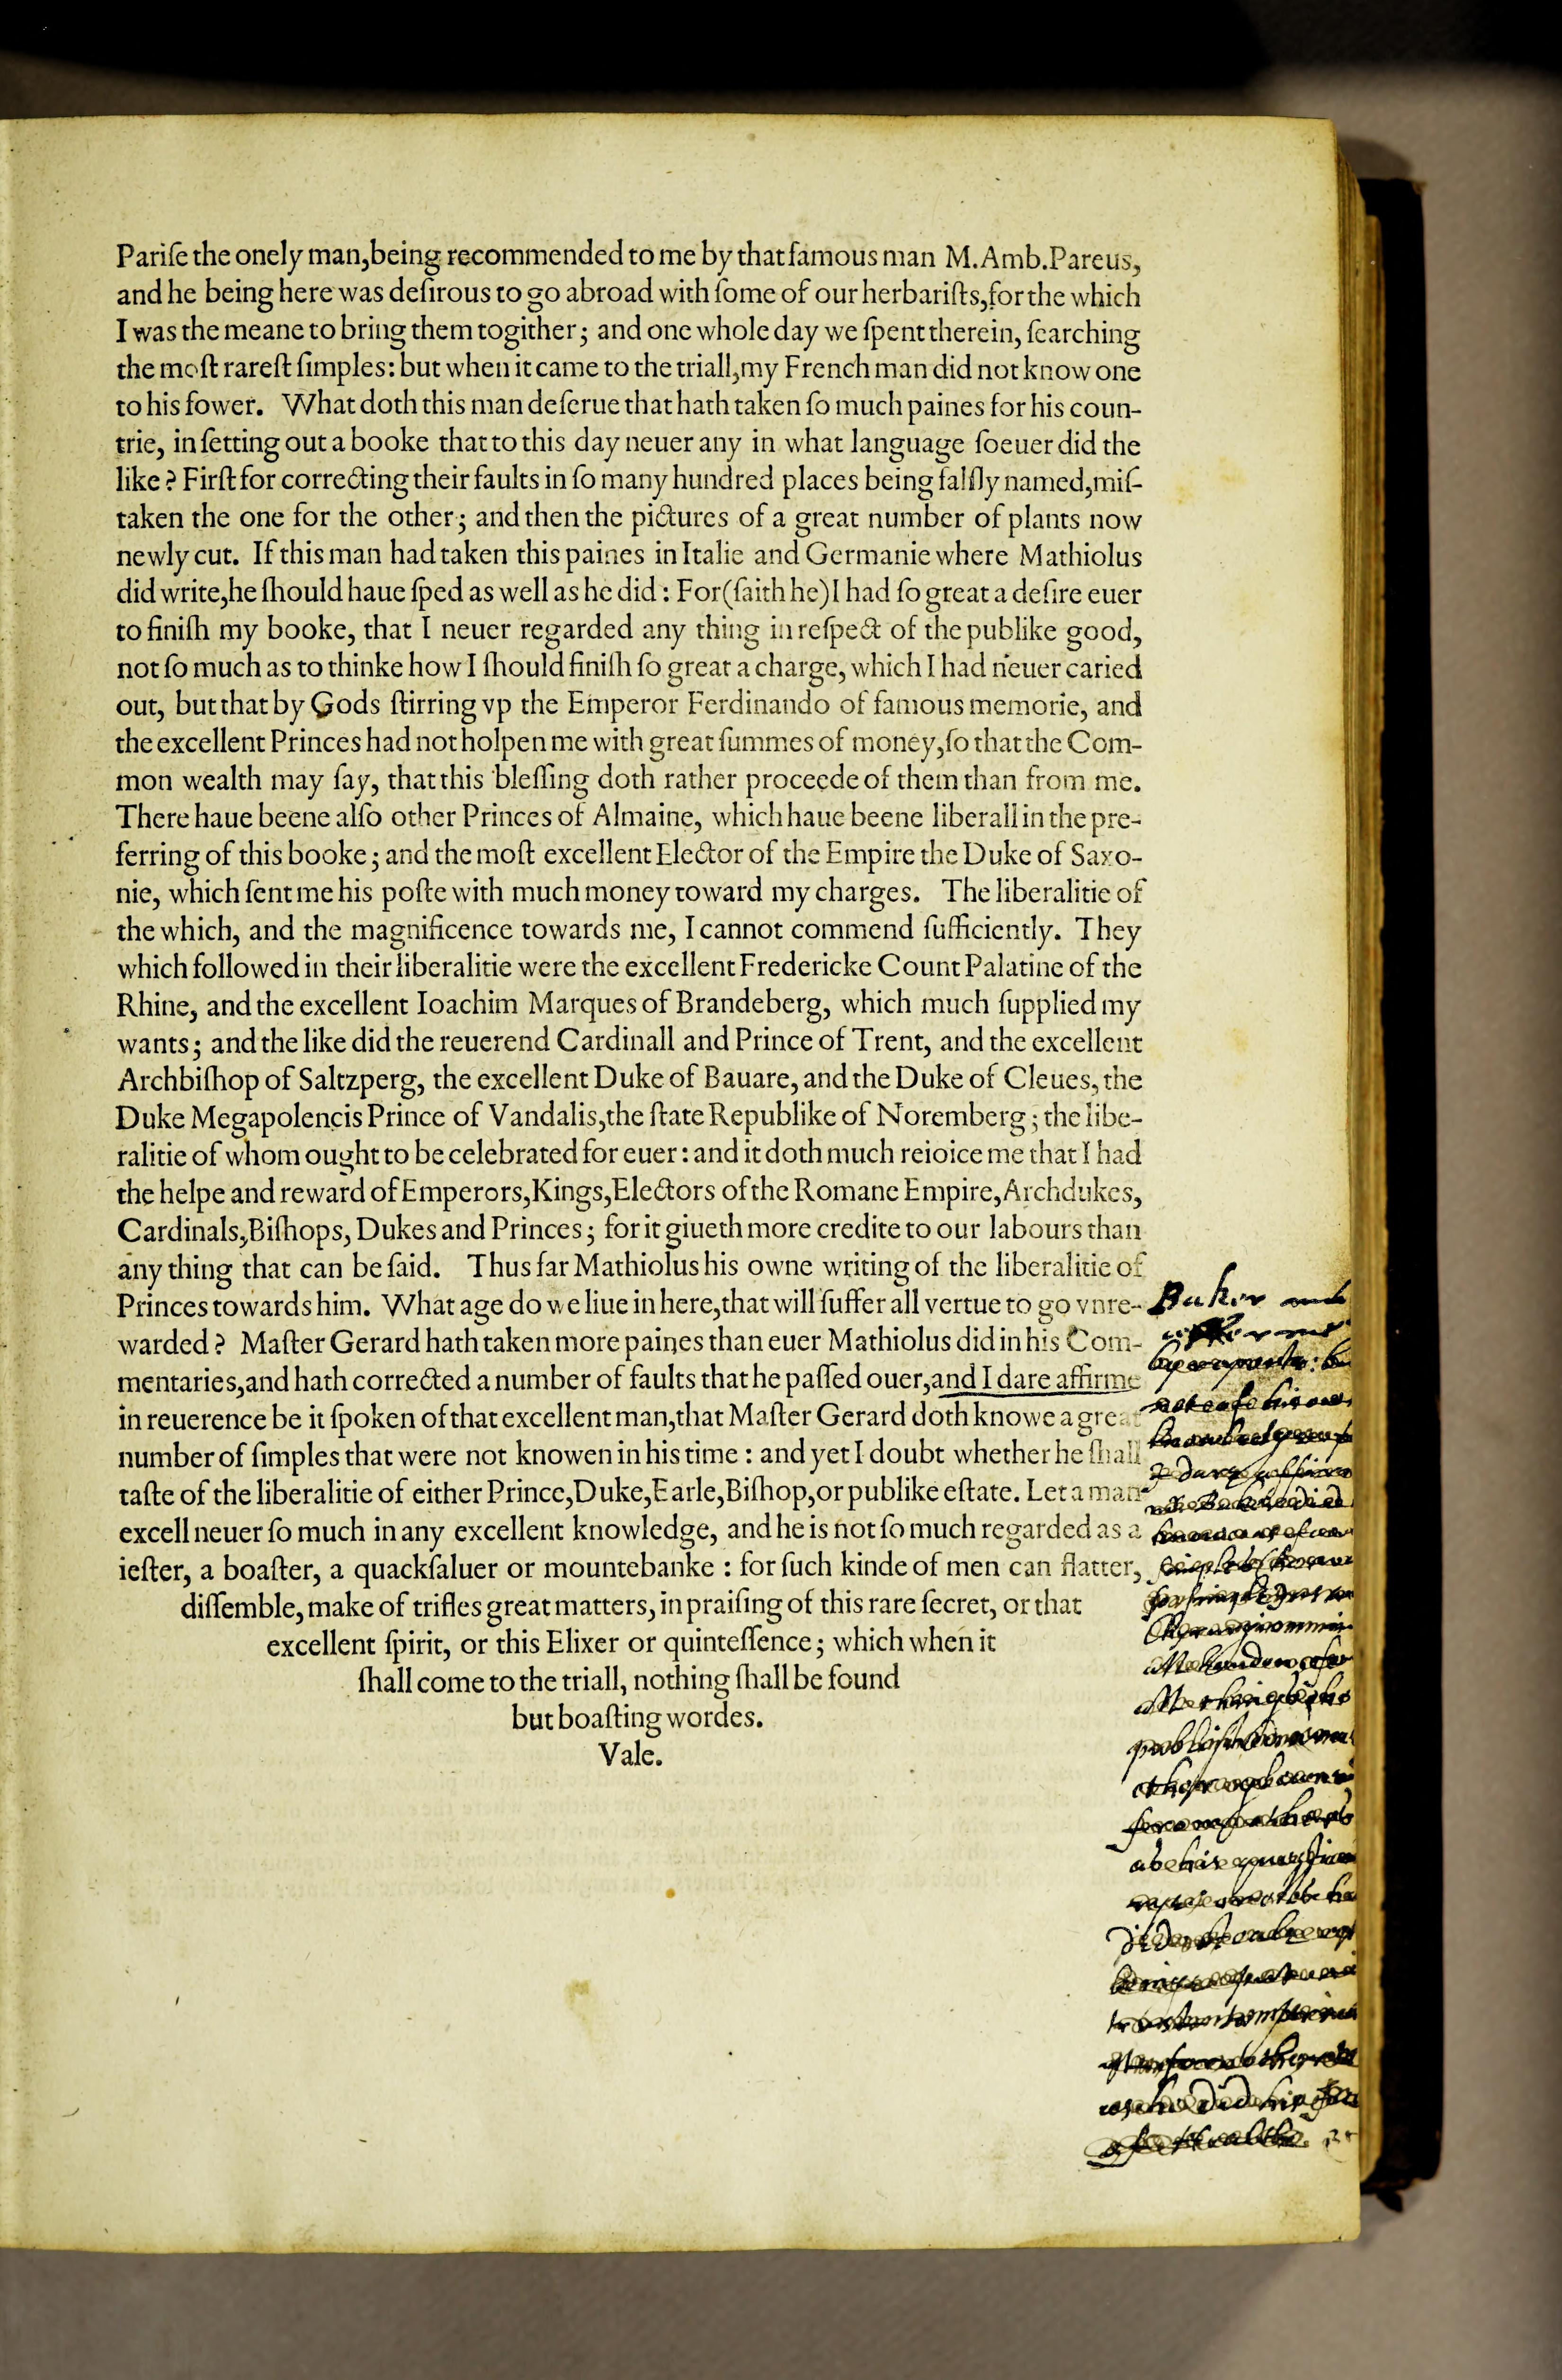 Pariſe the onely man,being recommended to me by that famous man M.Amb.Pareus,
and he being here was deſirous to go abroad with ſome of our herbariſts,for the which
I was the meane to bring them togither; and one whole day we ſpent therein, ſearching
the moſt rareſt ſimples: but when it came to the triall,my French man did not know one
to his fower. What doth this man deſerue that hath taken ſo much paines for his coun-
trie, in ſetting out a booke that to this day neuer any in what language ſoeuer did the
like ? Firſt for correcting their faults in ſo many hundred places being falſly named,miſ-
taken the one for the other; and then the pictures of a great number of plants now
newly cut. If this man had taken this paines in Italie and Germanie where Mathiolus
did write,he ſhould haue ſped as well as he did : For(ſaith he)I had ſo great a deſire euer
to finiſh my booke, that I neuer regarded any thing in reſpect of the publike good,
not ſo much as to thinke how I ſhould finiſh ſo great a charge, which I had neuer caried
out, but that by Gods ſtirring vp the Emperor Ferdinando of famous memorie, and
the excellent Princes had not holpen me with great ſummes of money,ſo that the Com-
mon wealth may ſay, that this bleſſing doth rather proceede of them than from me.
There haue beene alſo other Princes of Almaine, which haue beene liberall in the pre-
ferring of this booke; and the moſt excellent Elector of the Empire the Duke of Saxo-
nie, which ſent me his poſte with much money toward my charges. The liberalitie of
the which, and the magnificence towards me, I cannot commend ſufficiently. They
which followed in their liberalitie were the excellent Fredericke Count Palatine of the
Rhine, and the excellent Ioachim Marques of Brandeberg, which much ſupplied my
wants; and the like did the reuerend Cardinall and Prince of Trent, and the excellent
Archbiſhop of Saltzperg, the excellent Duke of Bauare, and the Duke of Cleues, the
Duke Megapolencis Prince of Vandalis,the ſtate Republike of Noremberg; the libe-
ralitie of whom ought to be celebrated for euer: and it doth much reioice me that I had
the helpe and reward of Emperors,Kings,Electors of the Romane Empire,Archdukes,
Cardinals,Biſhops, Dukes and Princes; for it giueth more credite to our labours than
any thing that can be ſaid. Thus far Mathiolus his owne writing of the liberalitie of
Princes towards him. What age do we liue in here,that will ſuffer all vertue to go vnre-
warded ? Maſter Gerard hath taken more paines than euer Mathiolus did in his Com-
mentaries,and hath corrected a number of faults that he paſſed ouer,and I dare affirme
in reuerence be it ſpoken of that excellent man,that Maſter Gerard doth knowe a great
number of ſimples that were not knowen in his time : and yet I doubt whether he ſhall
taſte of the liberalitie of either Prince,Duke,Earle,Biſhop,or publike eſtate. Let a man
excell neuer ſo much in any excellent knowledge, and he is not ſo much regarded as a
ieſter, a boaſter, a quackſaluer or mountebanke : for ſuch kinde of men can flatter,
diſſemble, make of trifles great matters, in praiſing of this rare ſecret, or that
excellent ſpirit, or this Elixer or quinteſſence; which when it
ſhall come to the triall, nothing ſhall be found
but boaſting wordes.
Vale.
Baker